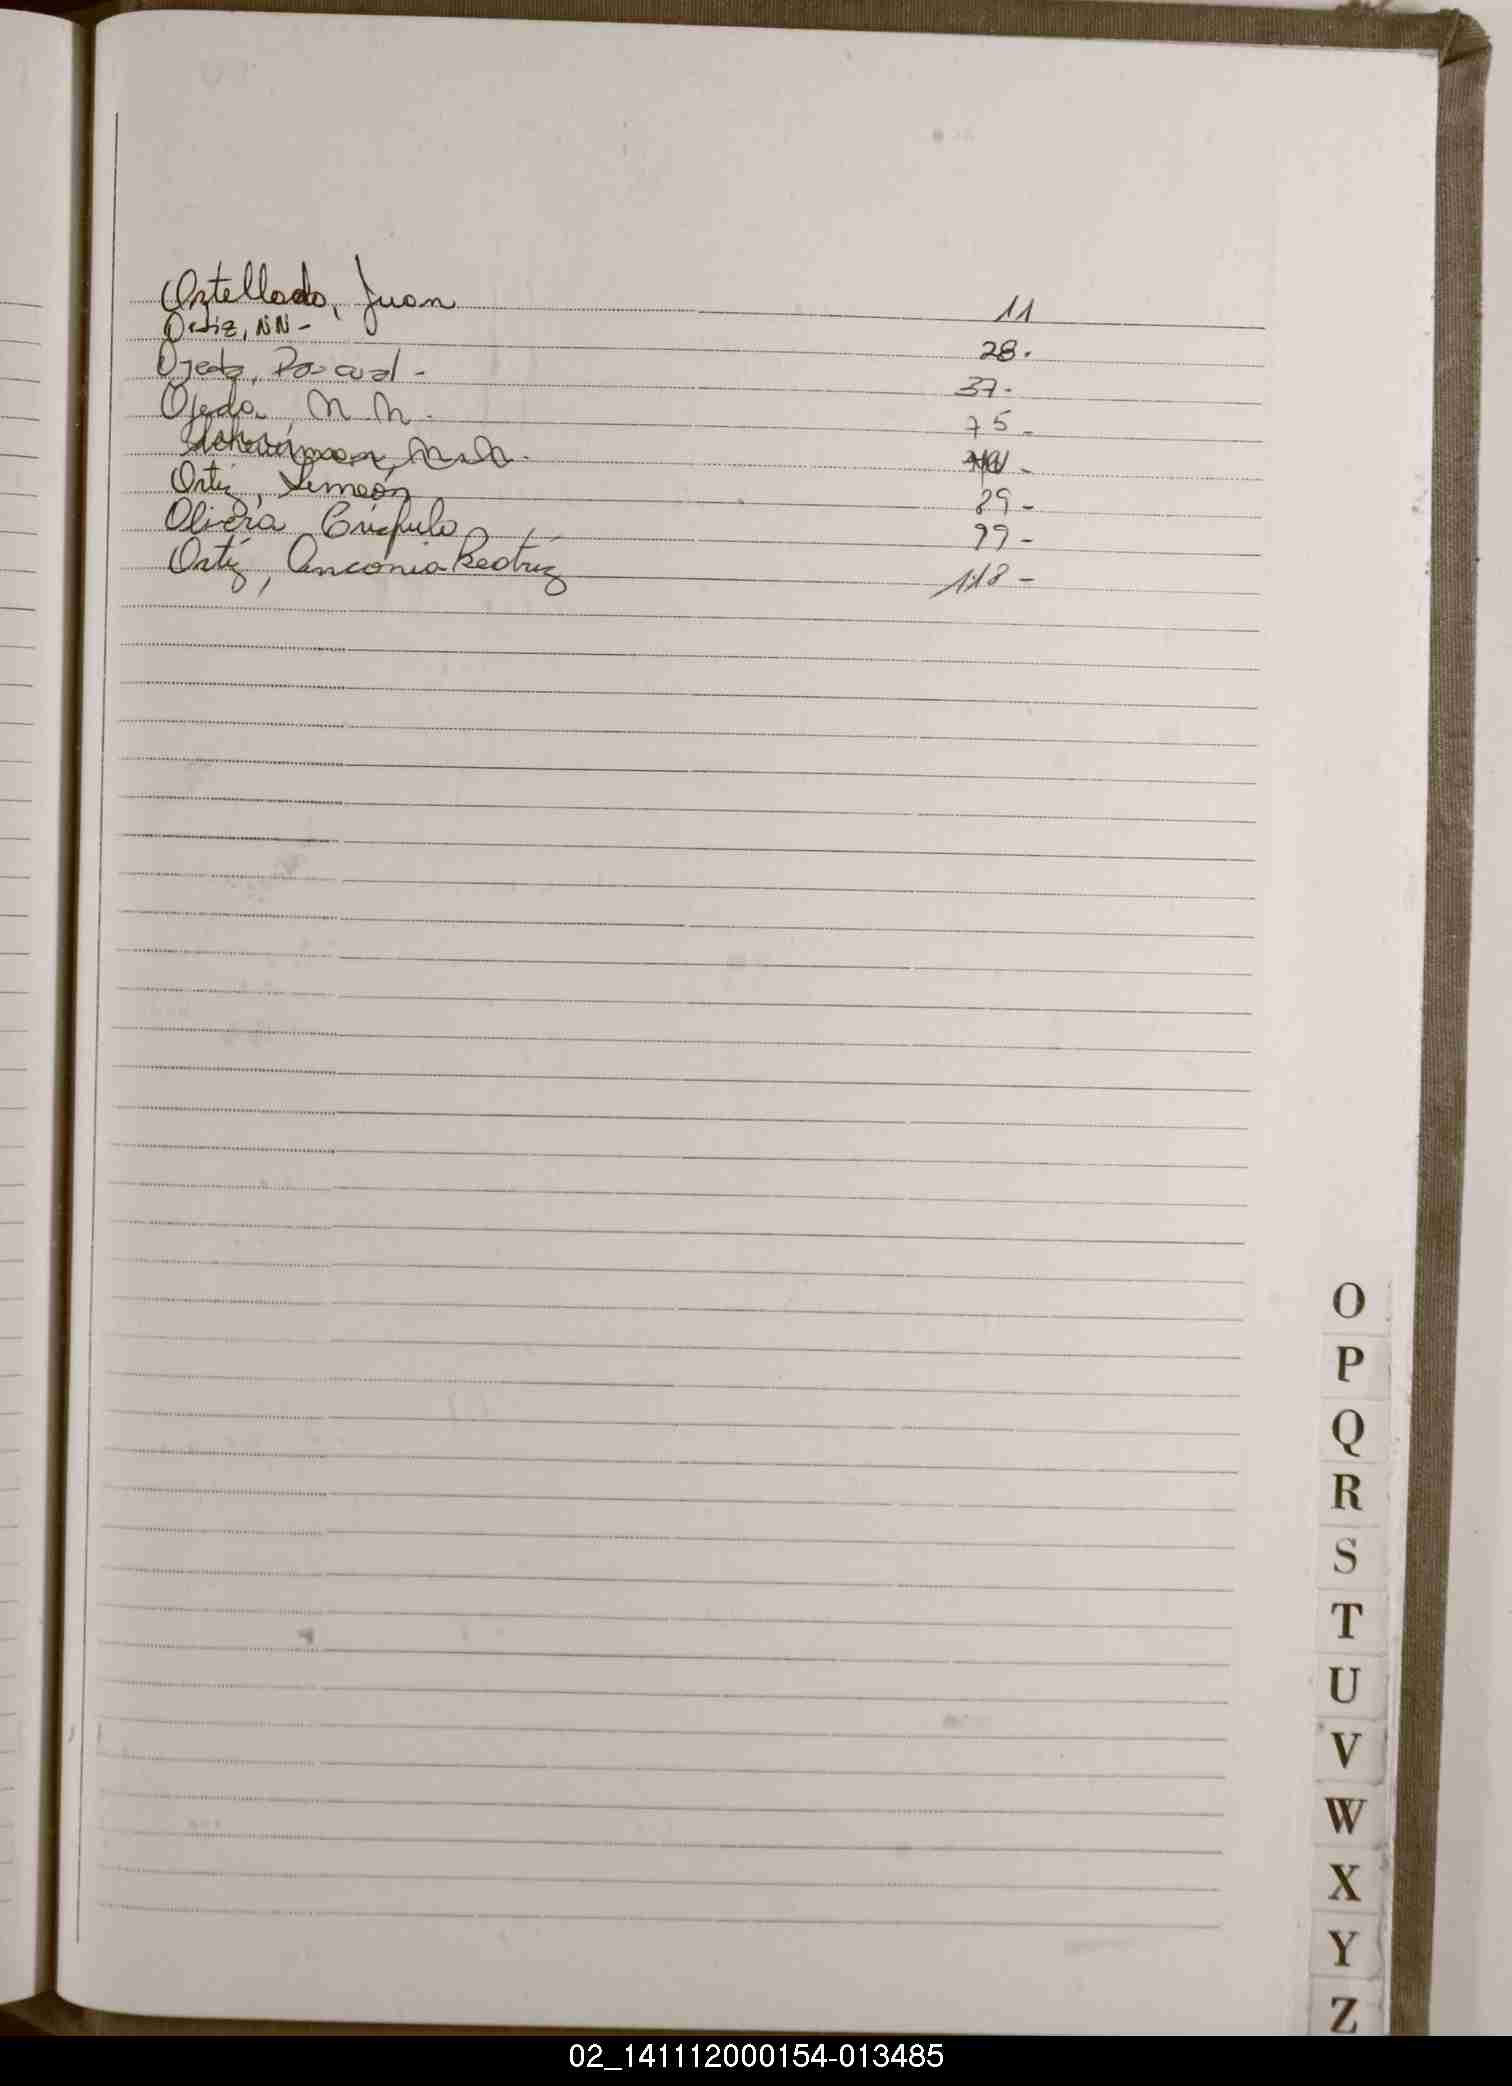 Ortellado, Juan 11
Ortiz, NN - 28.
Ojeda, Pascual - 37.
Ojeda, N N. 75 -
N.N. -
Ortiz, Simeón 89 -
Olivera Críspulo 99 -
Ortiz, Beatriz 118 -
O
P
Q
R
S
T
U
V
W
X
Y
Z
02_141112000154-013485